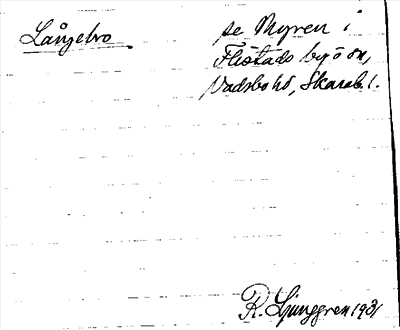 Långebro
se Myren i
Flistads by o sn,
Vadsbo hd, Skarab. l.
R. Ljunggren 1931